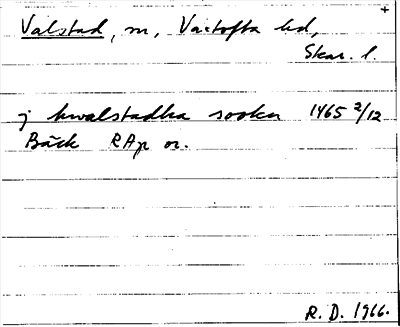 +
Valstad, sn, Vartofta hd,
Skar. l.
j hwalstadha sookn 1465 2/12
Bäck RAp or.
R. D. 1966.